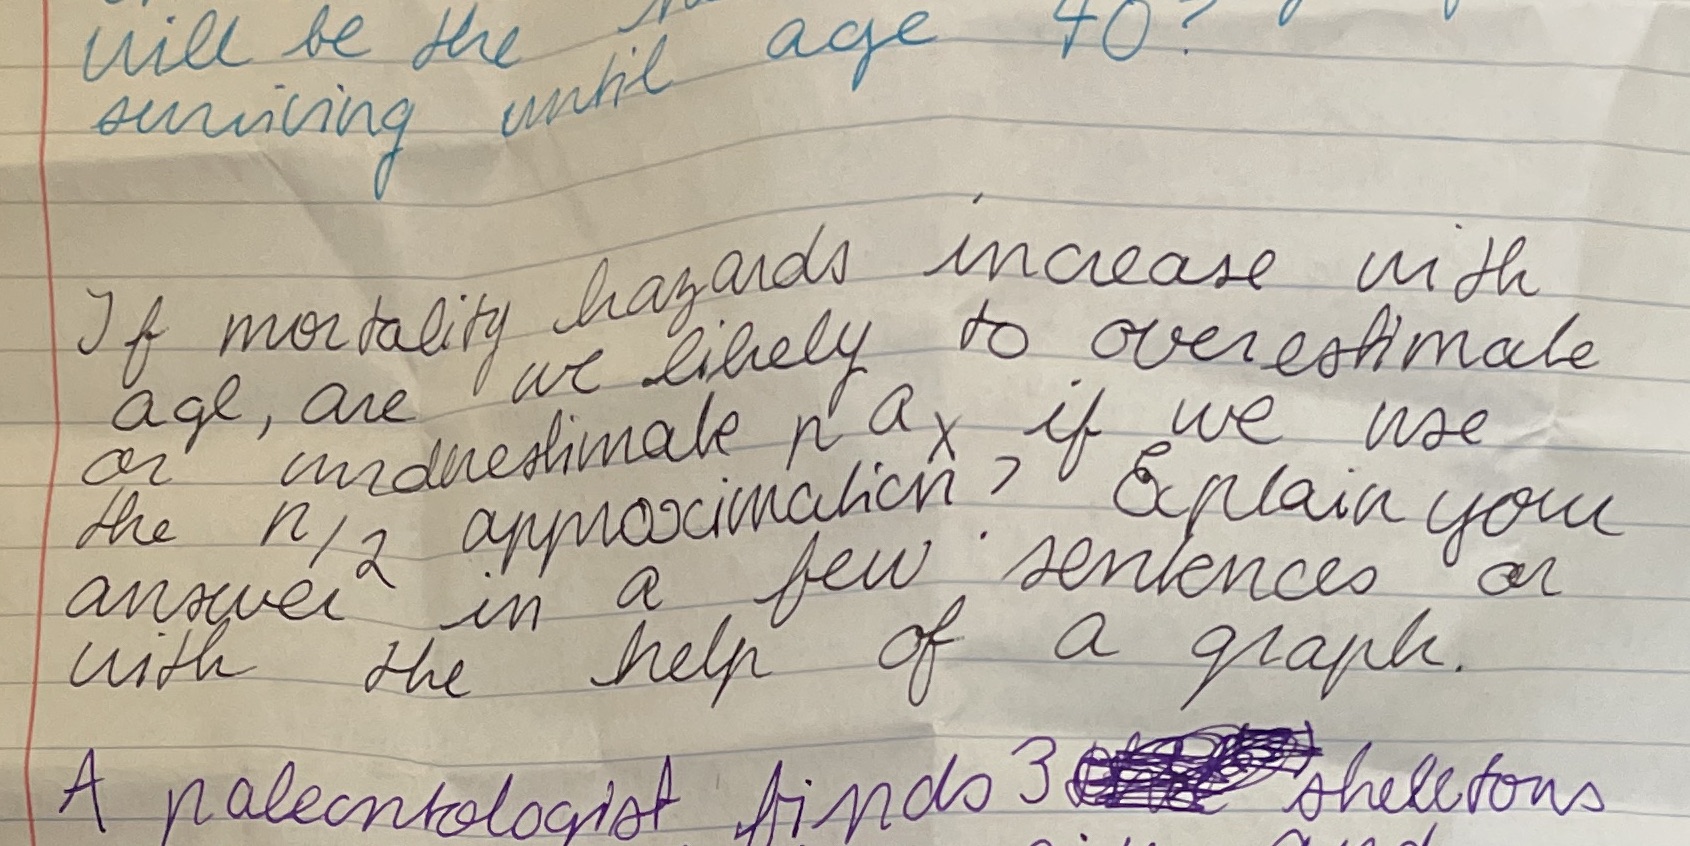 will be the
age 40?
surviving until
If mortality hazards increase with
age, are we likely to overestimate
or underestimate nax if we use
the n/2 approximation? Explain your
answer in a few sentences or
with the help of a graph.
A paleontologist finds 3 skeletons
and